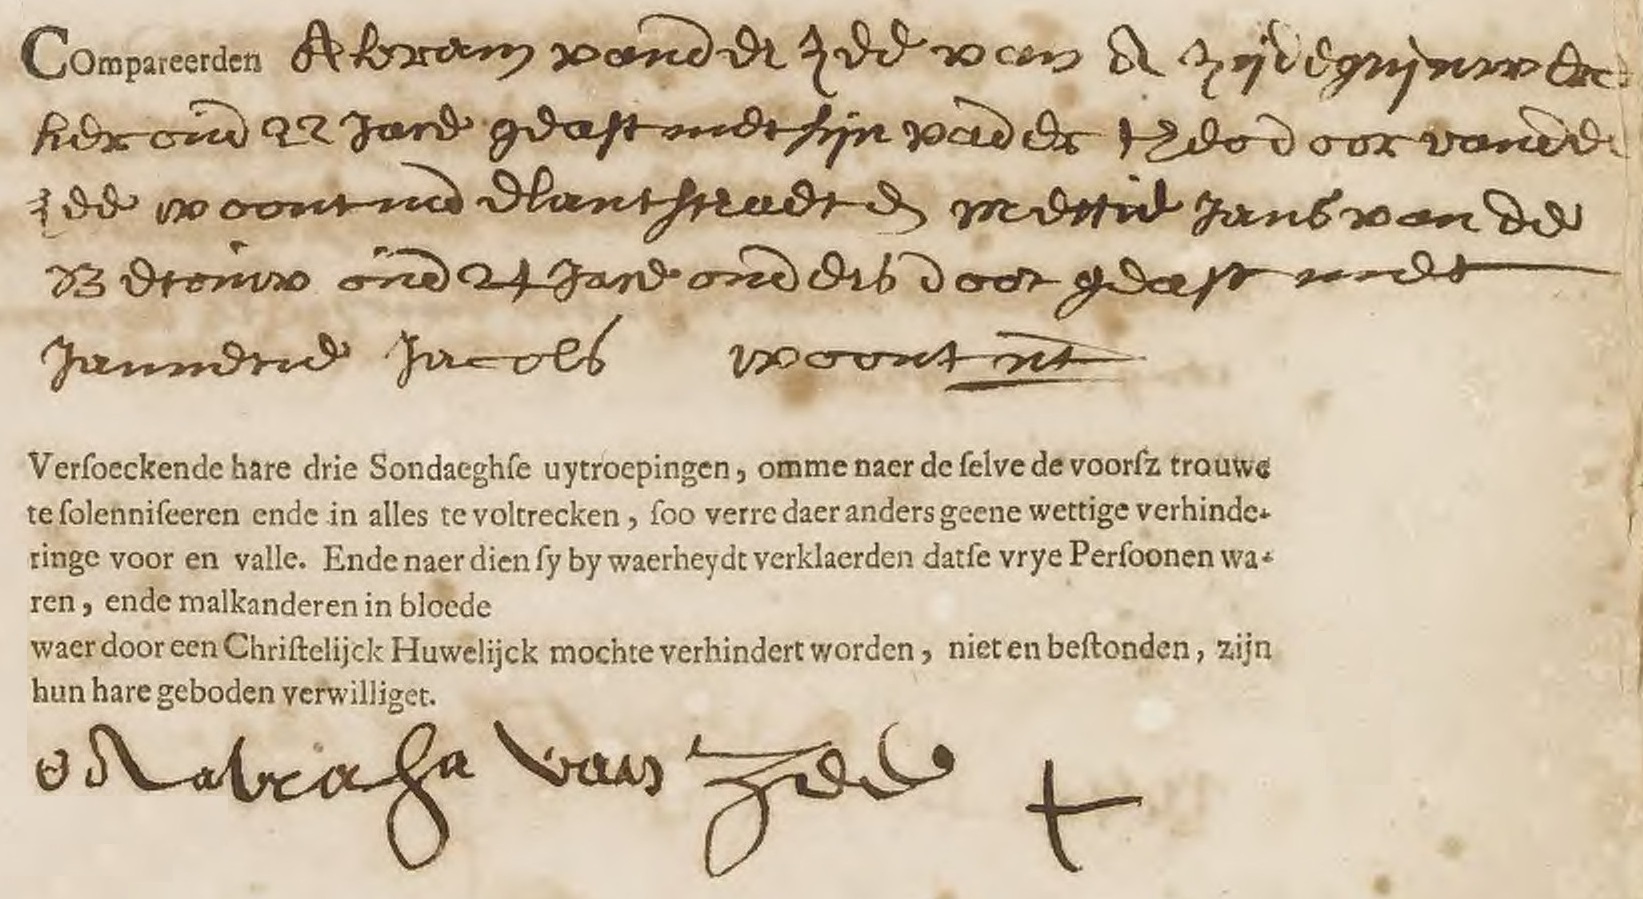 COmpareerden Abram vander Zee van A zijdegrijnwerc
ker oud 22 Jare geast met sijn vader Theodoor vande
Zee woont inde Elantstraet & Mettie Jans van de
Beeuw oud 24 Jare ouders doot geast met
Jannetie Jacobs woont ut
Versoeckende hare drie Sondaeghse uytroepingen, omme naer de selve de voorsz trouwe
te solenniseeren ende in alles te voltrecken, soo verre daer anders geene wettige verhinde-
ringe voor en valle. Ende naer dien sy by waerheydt verklaerden datse vrye Persoonen wa-
ren, ende malkanderen in bloede
waer door een Christelijck Huwelijck mochte verhindert worden, niet en bestonden, zijn
hun hare geboden verwilliget.
Abraha van Zee +